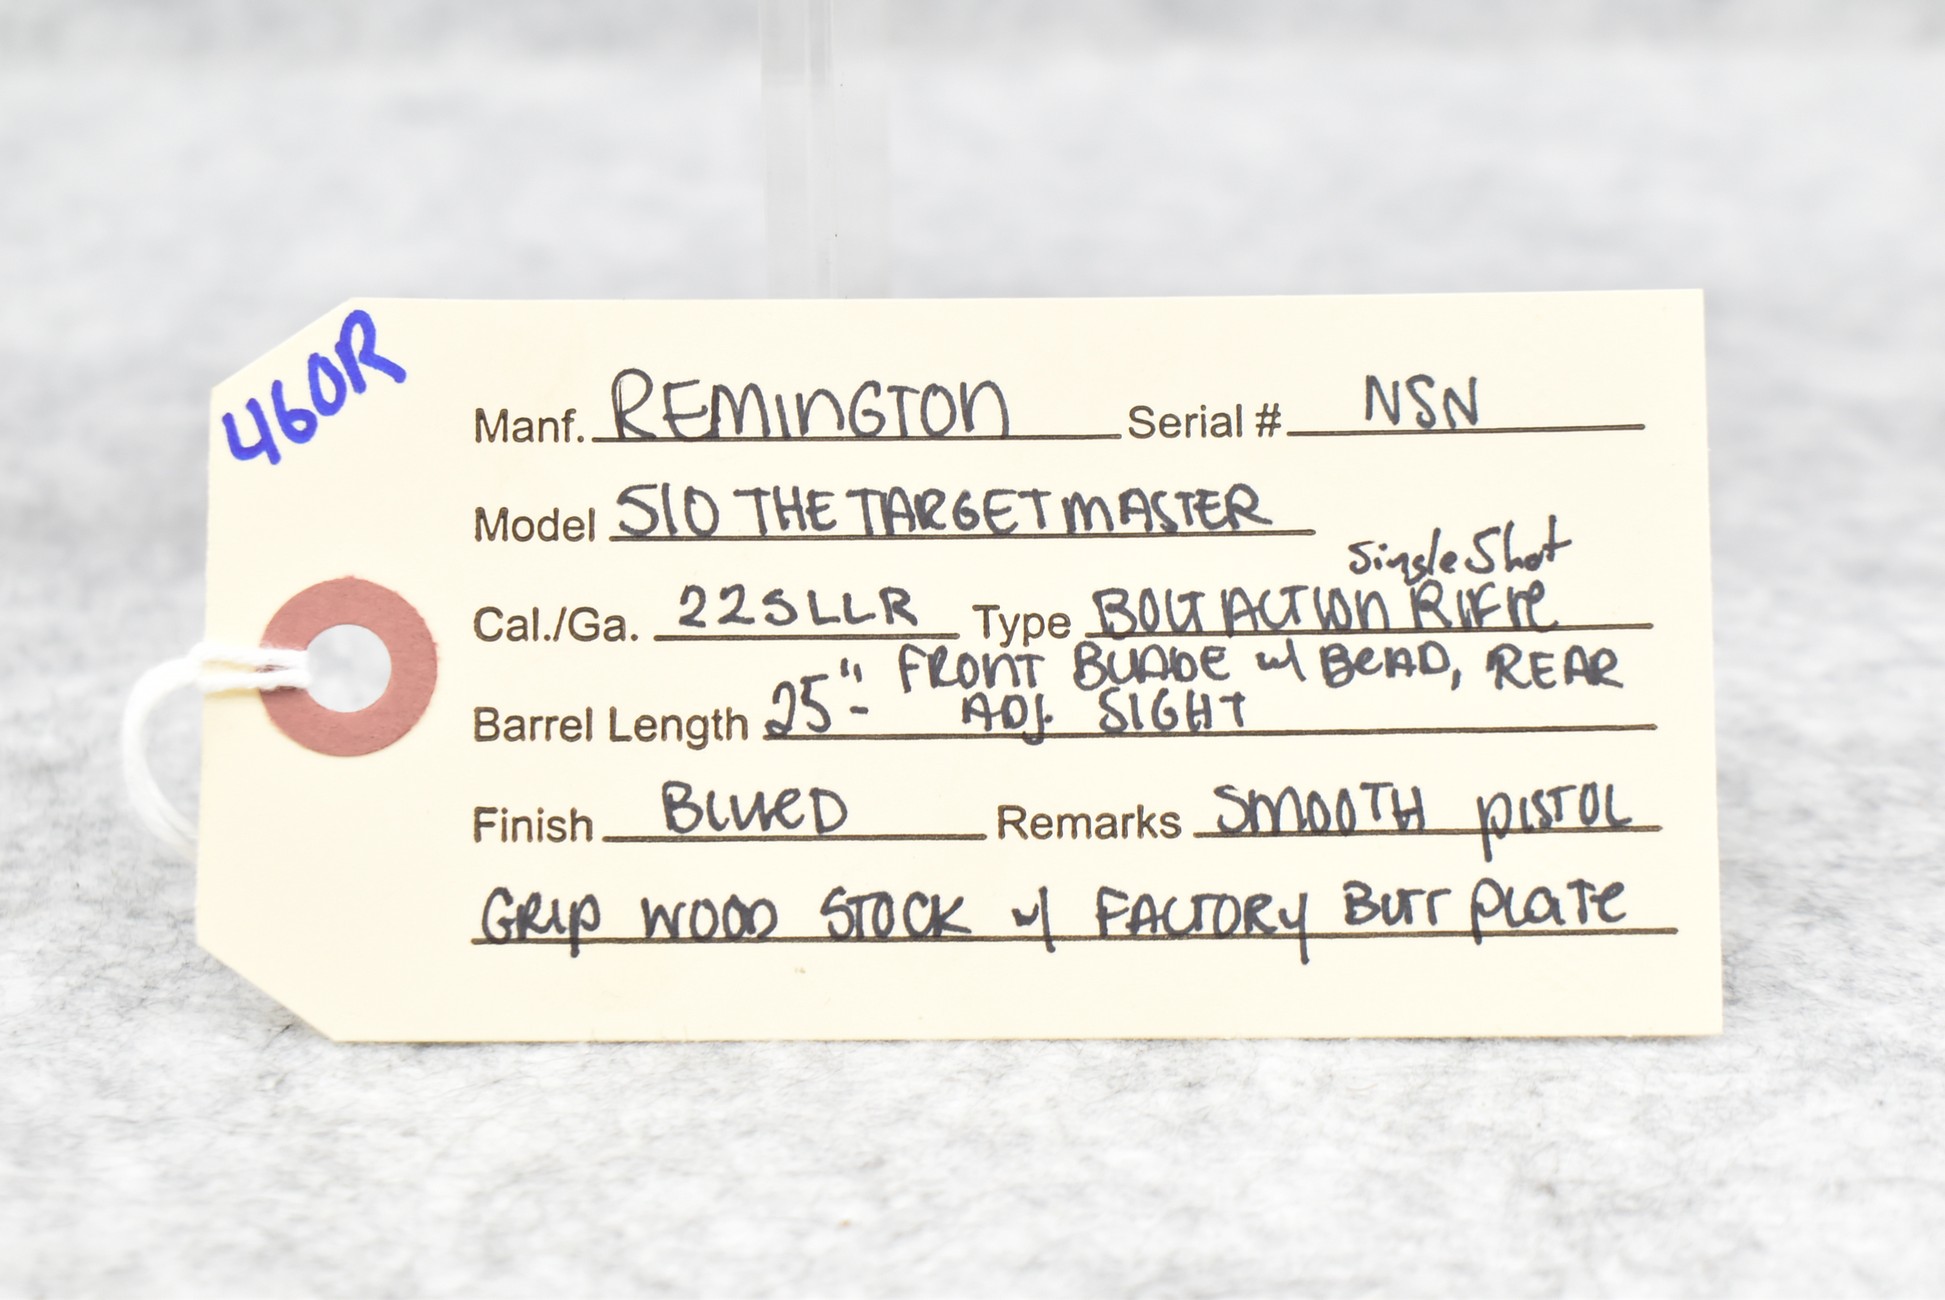 460R
Manf. REMINGTON Serial # NSN
Model 510 THE TARGETMASTER
Single Shot
Cal./Ga. 22 S L LR Type BOLT ACTION RIFLE
FRONT BLADE w/ BEAD, REAR
Barrel Length 25"- ADJ. SIGHT
Finish BLUED Remarks SMOOTH PISTOL
GRIP WOOD STOCK w/ FACTORY BUTT PLATE